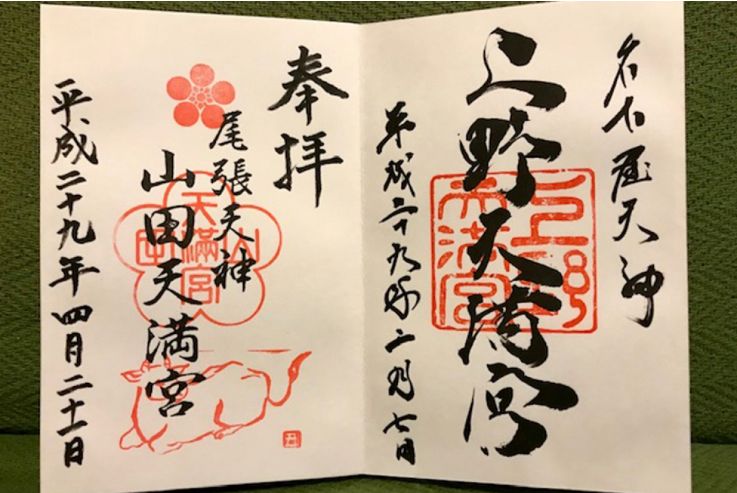 名古屋天神
上野天満宮
上野
天満宮
平成二十九年二月七日
奉拝
尾張天神
山田天満宮
山
天満宮
田
平成二十九年四月二十一日